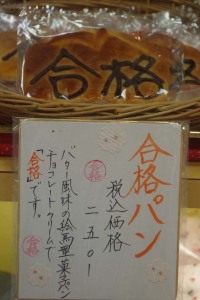 合格
合格パン
税込価格
二五〇-
バター風味の絵馬型菓子パン
チョコレートクリームで
「合格」です。